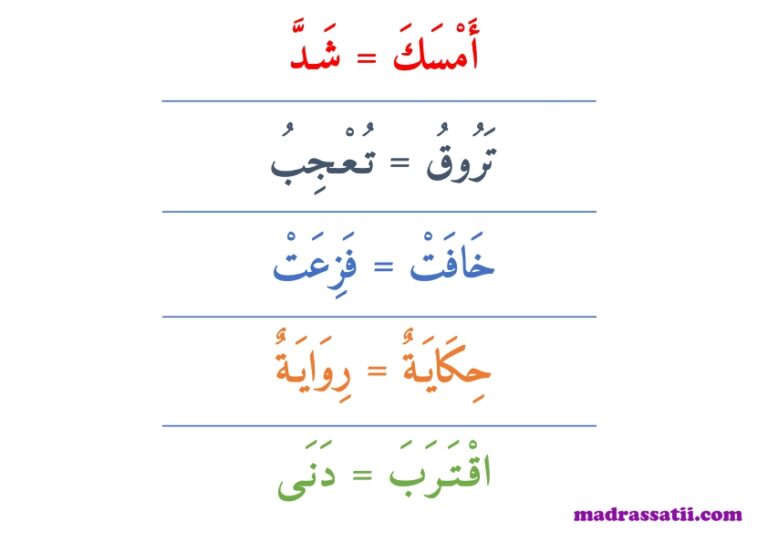 أَمْسَكَ = شَدَّ
تَرُوقُ = تُعْجِبُ
خَافَتْ = فَزِعَتْ
حِكَايَةٌ = رِوَايَةٌ
اقْتَرَبَ = دَنَى
madrassatii.com